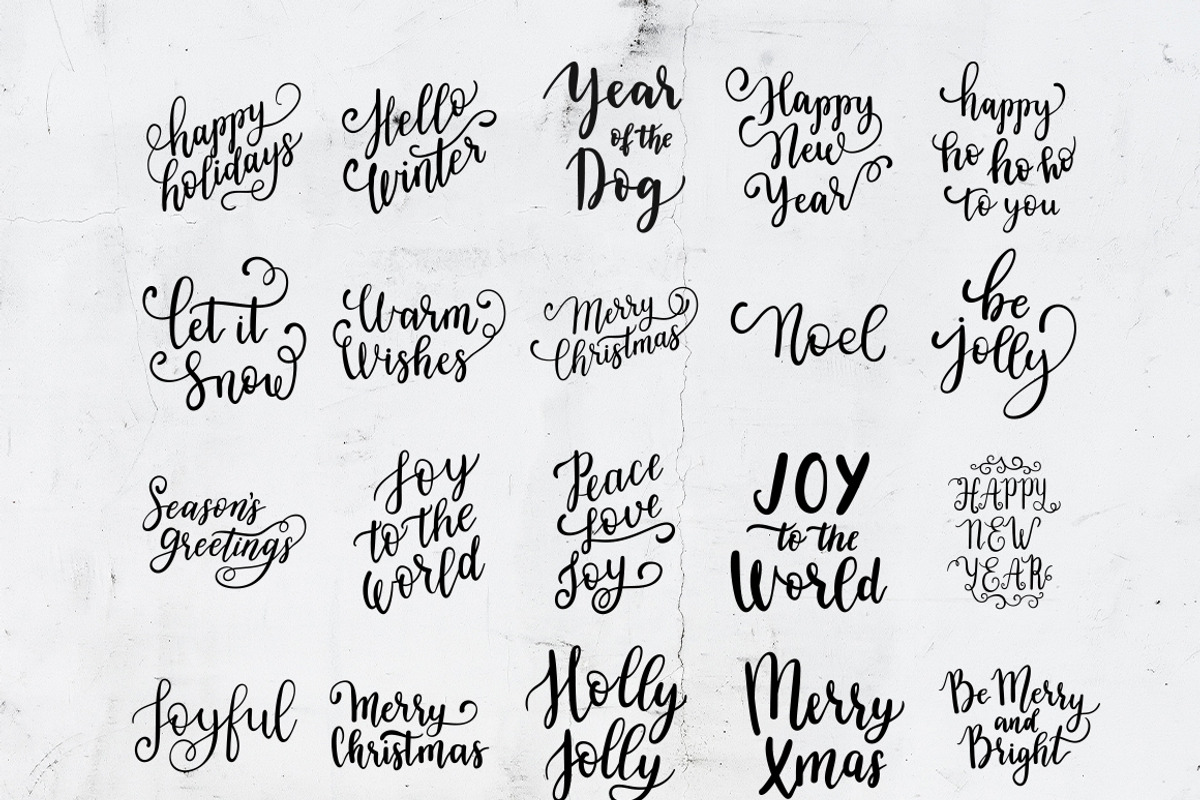 happy
holidays
Hello
Winter
Year
of the
Dog
Happy
New
Year
happy
ho ho ho
to you
let it
Snow
Warm
Wishes
Merry
Christmas
Noel
be
jolly
Season's
greetings
Joy
to the
world
Peace
Love
Joy
JOY
to the
World
HAPPY
NEW
YEAR
Joyful
Merry
Christmas
Holly
Jolly
Merry
Xmas
Be Merry
and
Bright